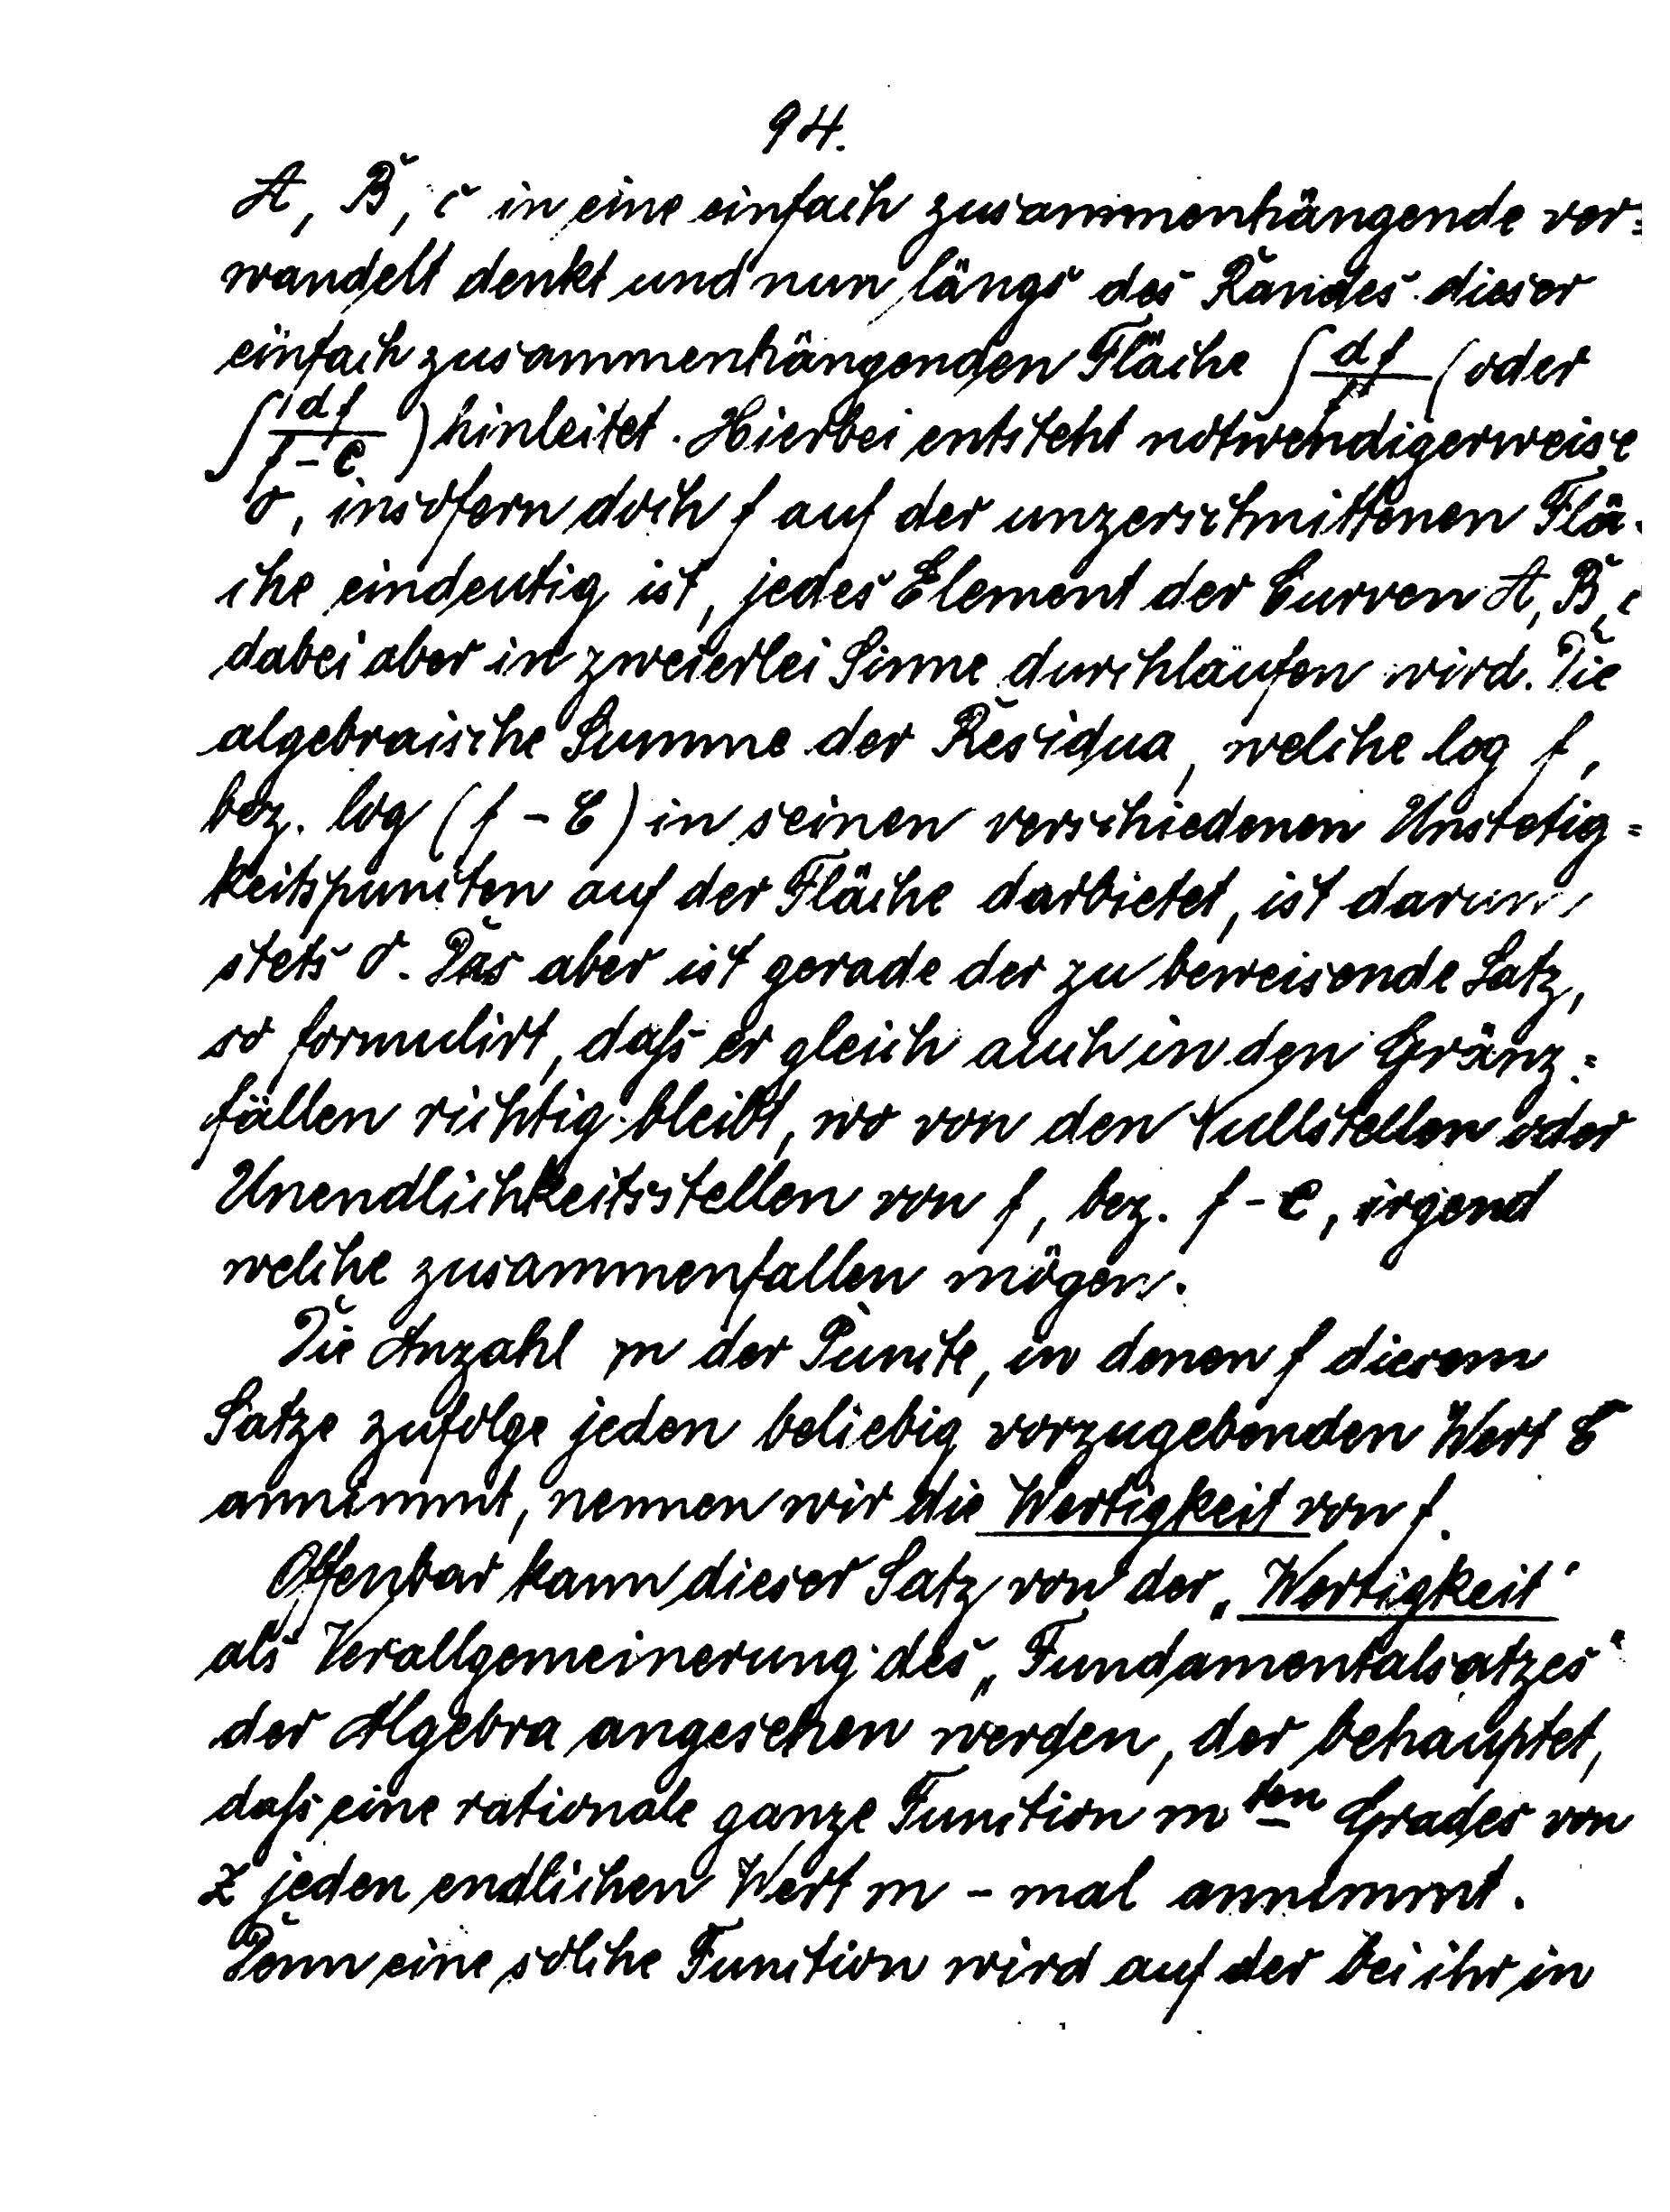 94.
A, B, c in eine einfach zusammenhängende ver=
wandelt denkt und nun längs des Randes dieser
einfach zusammenhängenden Fläche ∫ df/f (oder
∫ df/f-C ) hinleitet. Hierbei entsteht notwendigerweise
0, insofern doch f auf der unzerschnittenen Flä-
che eindeutig ist, jedes Element der Curven A, B, c
dabei aber in zweierlei Sinne durchlaufen wird. Die
algebraische Summe der Residua, welche log f,
bez. log (f - C) in seinen verschiedenen Unstetig=
keitspuncten auf der Fläche darbietet, ist darum
stets 0. Das aber ist gerade der zu beweisende Satz,
so formulirt, daß er gleich auch in den Gränz=
fällen richtig bleibt, wo von den Nullstellen oder
Unendlichkeitsstellen von f, bez. f - C, irgend
welche zusammenfallen mögen.
Die Anzahl m der Puncte, in denen f diesem
Satze zufolge jeden beliebig vorzugebenden Wert C
annimmt, nennen wir die Wertigkeit von f.
Offenbar kann dieser Satz von der „Wertigkeit"
als Verallgemeinerung des „Fundamentalsatzes"
der Algebra angesehen werden, der behauptet,
daß eine rationale ganze Function m ten Grades von
z jeden endlichen Wert m - mal annimmt.
Denn eine solche Function wird auf der bei ihr in